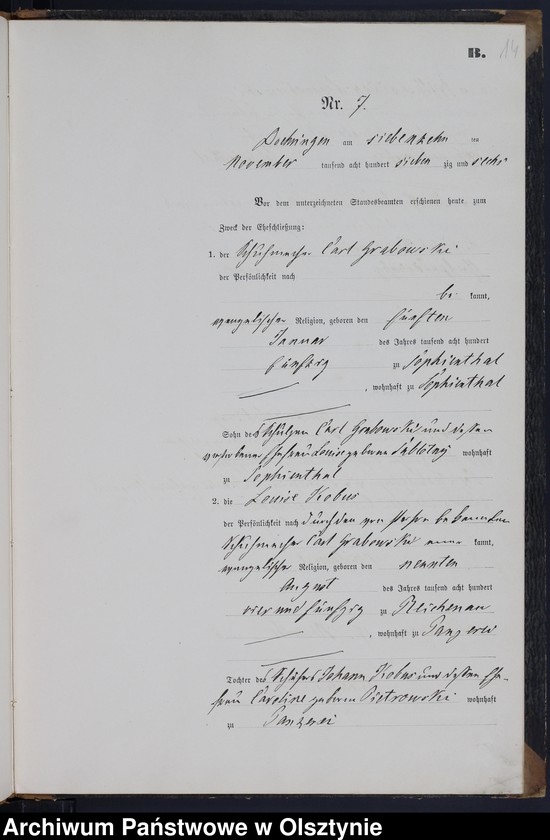 B. 14
Nr. 7.
Doehringen am siebenzehn ten
November tausend acht hundert sieben zig und sechs
Vor dem unterzeichneten Standesbeamten erschienen heute zum
Zweck der Eheschließung:
1. der Schuhmacher Carl Grabowski
der Persönlichkeit nach
be kannt,
evangelischer Religion, geboren den fünften
Januar des Jahres tausend acht hundert
fünfzig zu Sophienthal
, wohnhaft zu Sophienthal
Sohn des Schulzen Carl Grabowski und dessen
verstorbenen Ehefrau Louise geborene wohnhaft
zu Sophienthal
2. die Louise Kobus
der Persönlichkeit nach durch den von Person bekannten
Schuhmacher Carl Grabowski aner kannt,
evangelische Religion, geboren den neunten
August des Jahres tausend acht hundert
vier und fünfzig zu Reichenau
, wohnhaft zu Panzerei
Tochter des Schäfers Johann Kobus und dessen Ehe-
frau Caroline geborene Pietrowski wohnhaft
zu Panzerei
Archiwum Państwowe w Olsztynie